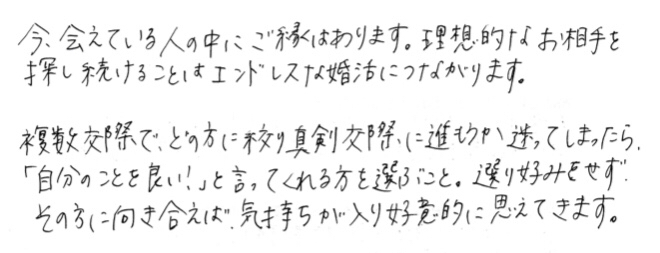 今、会えている人の中にご縁はあります。理想的なお相手を
探し続けることはエンドレスな婚活につながります。
複数交際で、どの方に絞り真剣交際に進もうか迷ってしまったら、
「自分のことを良い!」と言ってくれる方を選ぶこと。選り好みをせず、
その方に向き合えば、気持ちが入り好意的に思えてきます。